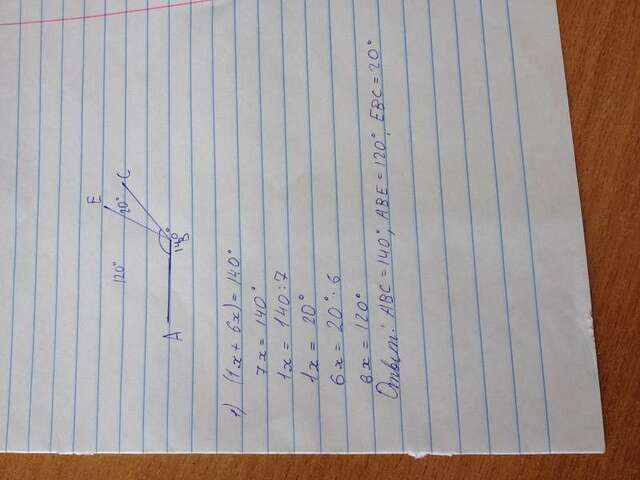 E
C
20°
120°
140°
B
A
1) (1x + 6x) = 140°
7x = 140°
1x = 140 : 7
1x = 20°
6x = 20° · 6
6x = 120°
Ответ: ABC = 140°, ABE = 120°, EBC = 20°